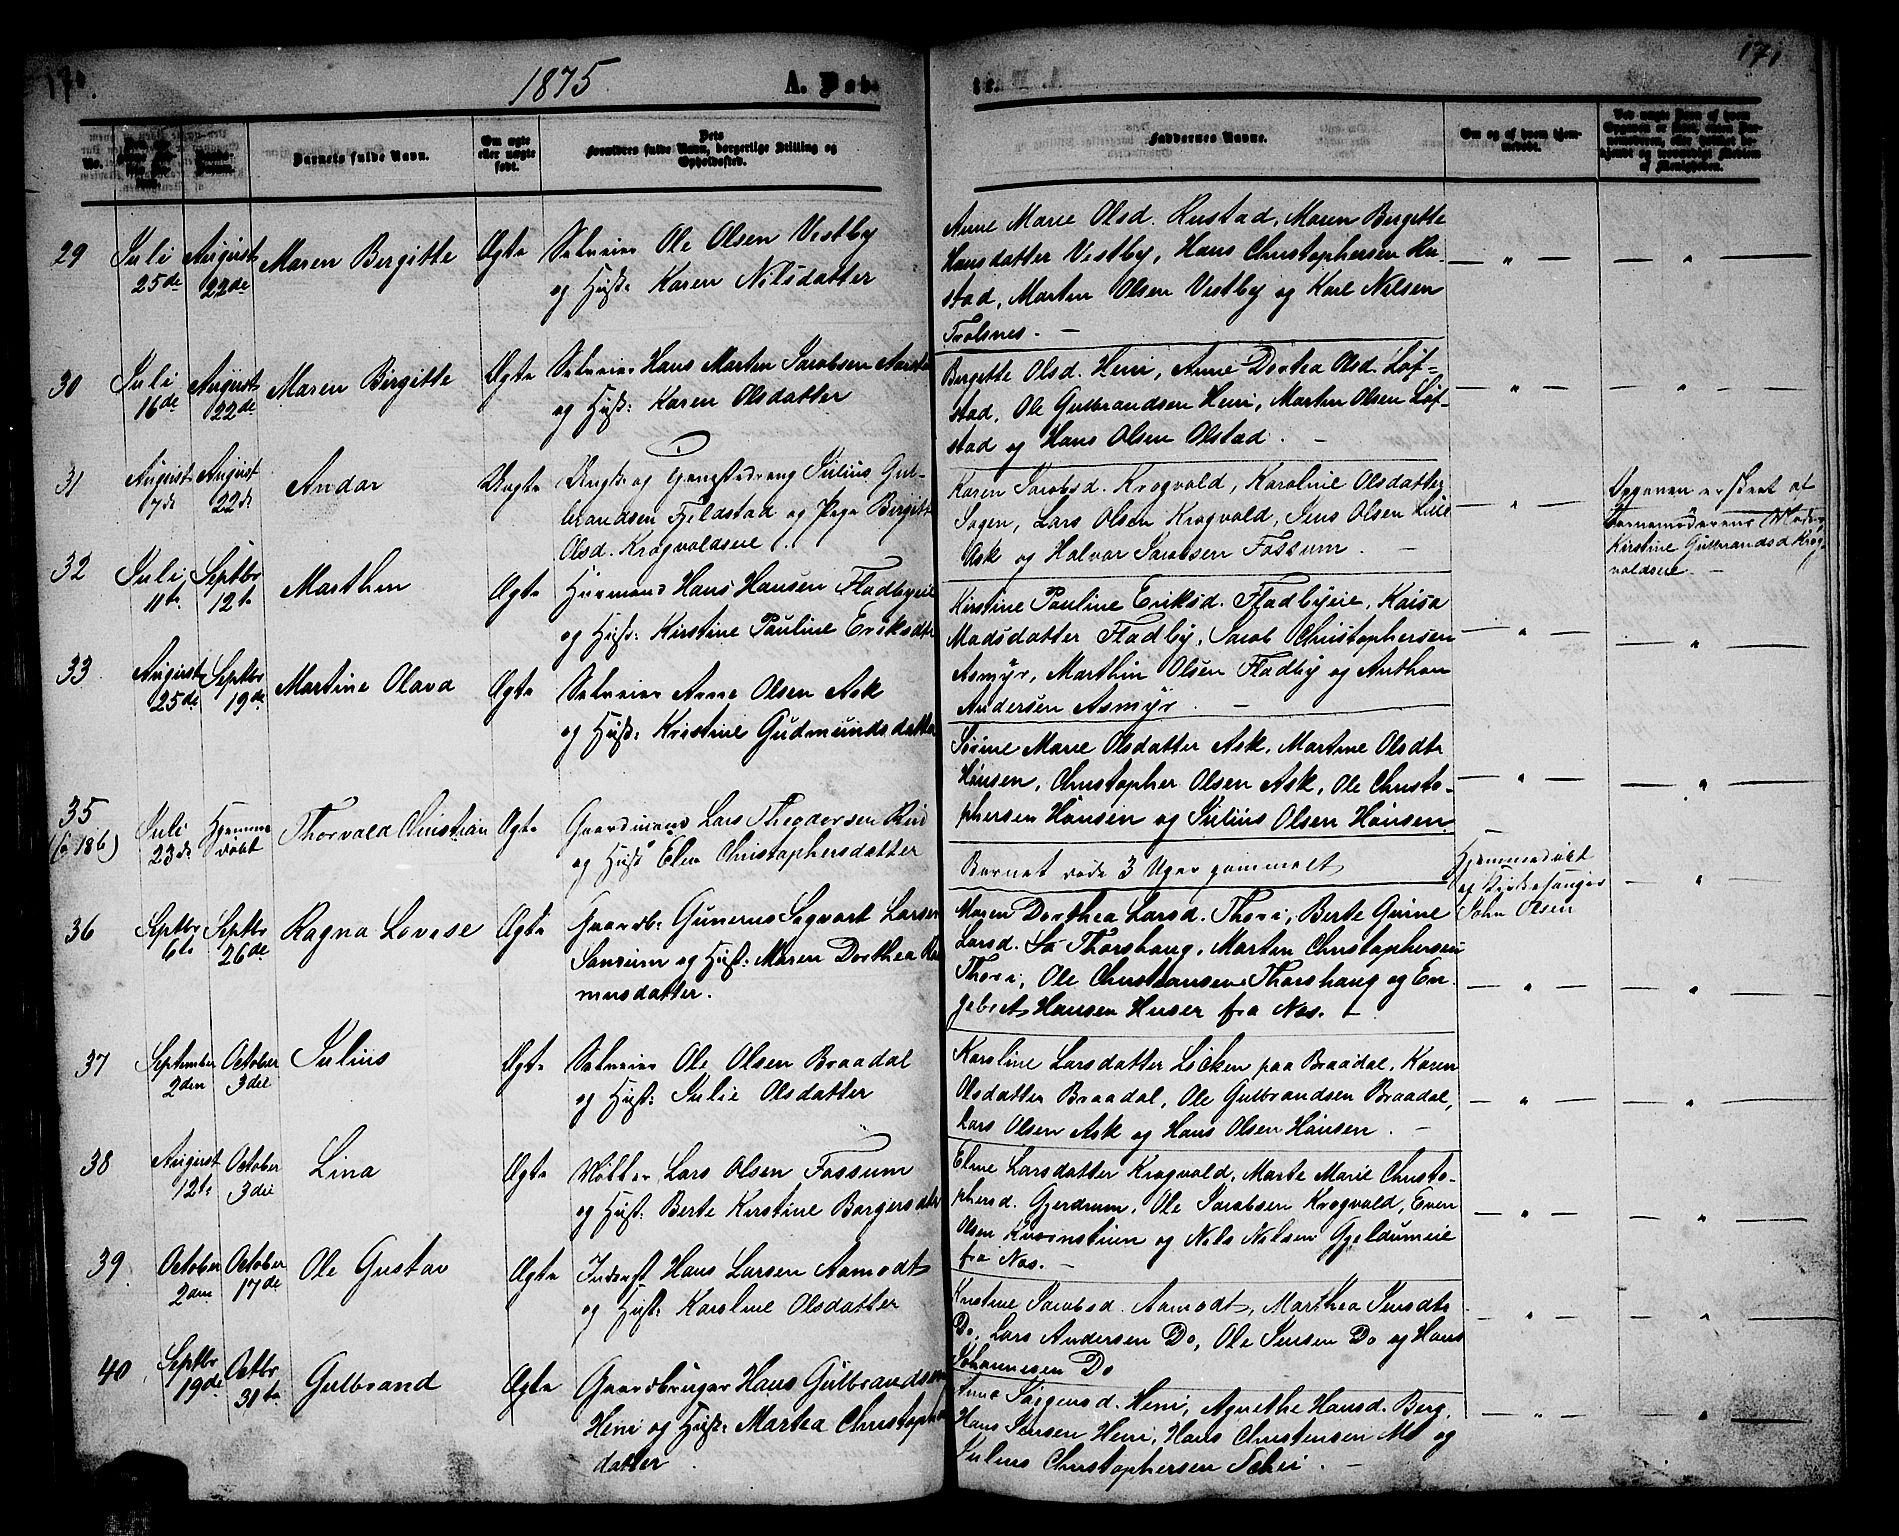 170.
1875.
A. Døb-
171
No.
Barnets fulde Navn.
Om ægte
eller uægte
født.
Dets
Forældres fulde Navn, borgerlige Stilling og
Opholdssted.
Faddernes Navne.
Om og af hvem hjem-
medøbt.
29
Juli
25de
August
22de
Maren Birgitte
Ægte
Selveier Ole Olsen Vestby
og Hust: Karen Nilsdatter
Anne Marie Olsd. Rustad, Maren Bergitte
Hansdatter Vestby, Hans Christophersen Ru-
stad, Marten Olsen Vestby og Karl Nilsen
Trolsnes. —
30
Juli
16de
August
22de
Maren Birgitte
Ægte
Selveier Hans Marten Jacobsen
og Hust: Karen Olsdatter
Bergitte Olsd. Heni, Anne Dortea Olsd. Løf-
stad, Ole Gulbrandsen Heni, Marten Olsen Løf-
stad og Hans Olsen Olstad. —
31
August
7de
August
22de
Andar
Uægte
Ungk. og Julius Gul-
brandsen Fjeldstad og Pige Birgitte
Olsd. Krogvoldseie.
Karen Jacobsd. Krogvold, Karoline Olsdatter
Sagen, Lars Olsen Krogvold, Jens Olsen Lille
Ask og Halvar Jacobsen Fossum. —
Opgaven er føret af
Barnemoderens Moder
Kirstine Gulbrandsd Krog-
voldseie. —
32
Juli
11te
Septbr
12te
Marthin
Ægte
Huusmand Hans Hansen Fladbyeie
og Hust: Kirstine Pauline Eriksdtr
Kirstine Pauline Eriksd. Fladbyeie, Kaisa
Madsdatter Fladby, Jacob Christophersen
Asmyr, Marthin Olsen Fladby og Anthon
Andersen Asmyr. —
33
August
25de
Septbr
19de
Martine Olava
Ægte
Selveier Arne Olsen Ask
og Hust: Kristine Gudmundsdatter
Sørine Marie Olsdatter Ask, Martine Olsdtr
Hønsen, Christopher Olsen Ask, Ole Christo-
phersen Hønsen og Julius Olsen Hønsen.
35
Juli
23de
Hjemme
døbt
Thorvald Christian
Ægte
Gaardmand Lars Theodorsen Rud
og Hust Elen Christophersdatter
Barnet døde 3 Uger gammelt
Hjemmedøbt
af Kirkesanger
John Olsen
36
Septbr
6te
Septbr
26de
Ragna Lovise
Ægte
Gaardb: Gunerus Sigvart Larsen
og Hust: Maren Dorthea
mersdatter.
Maren Dorthea Larsd. Thori, Berte Gurine
Larsd. Thorshaug, Marten Christophersen
Thori, Ole Christiansen Thorshaug og En-
gebret Hansen Huser fra Nes. —
37
September
2den
October
3die
Julius
Ægte
Selveier Ole Olsen Braadal
og Hust: Julie Olsdatter
Karoline Larsdatter Løcken paa Braadal, Karen
Olsdatter Braadal, Ole Gulbrandsen Braadal,
Lars Olsen Ask og Hans Olsen Hønsen. —
38
August
12te
October
3die
Lina
Ægte
Møller Lars Olsen Fossum
og Hust: Berte Kirstine Borgersdtr
Eline Larsdatter Krogvold, Marte Marie Christo-
phersd. Gjerdrum, Ole Jacobsen Krogvold, Even
Olsen Kvernstuen og Nils Nilsen Gjeldumeie
fra Nes. —
39
October
2den
October
17de
Ole Gustav
Ægte
Inderst Hans Larsen Aamodt
og Hust: Karoline Olsdatter
Kristine Jacobsd. Aamodt, Marthea Jensdtr
Do, Lars Andersen Do, Ole Jensen Do og Hans
Johannesen Do
40
Septbr
19de
Octbr
31te
Gulbrand
Ægte
Gaardbruger Hans Gulbrandsen
Heni og Hust: Martea Christophers
datter.
Anne Jørgensd. Heni, Agnethe Hansd. Berg,
Hans Jensen Heni, Hans Christensen Mo og
Julius Christophersen Schei. —